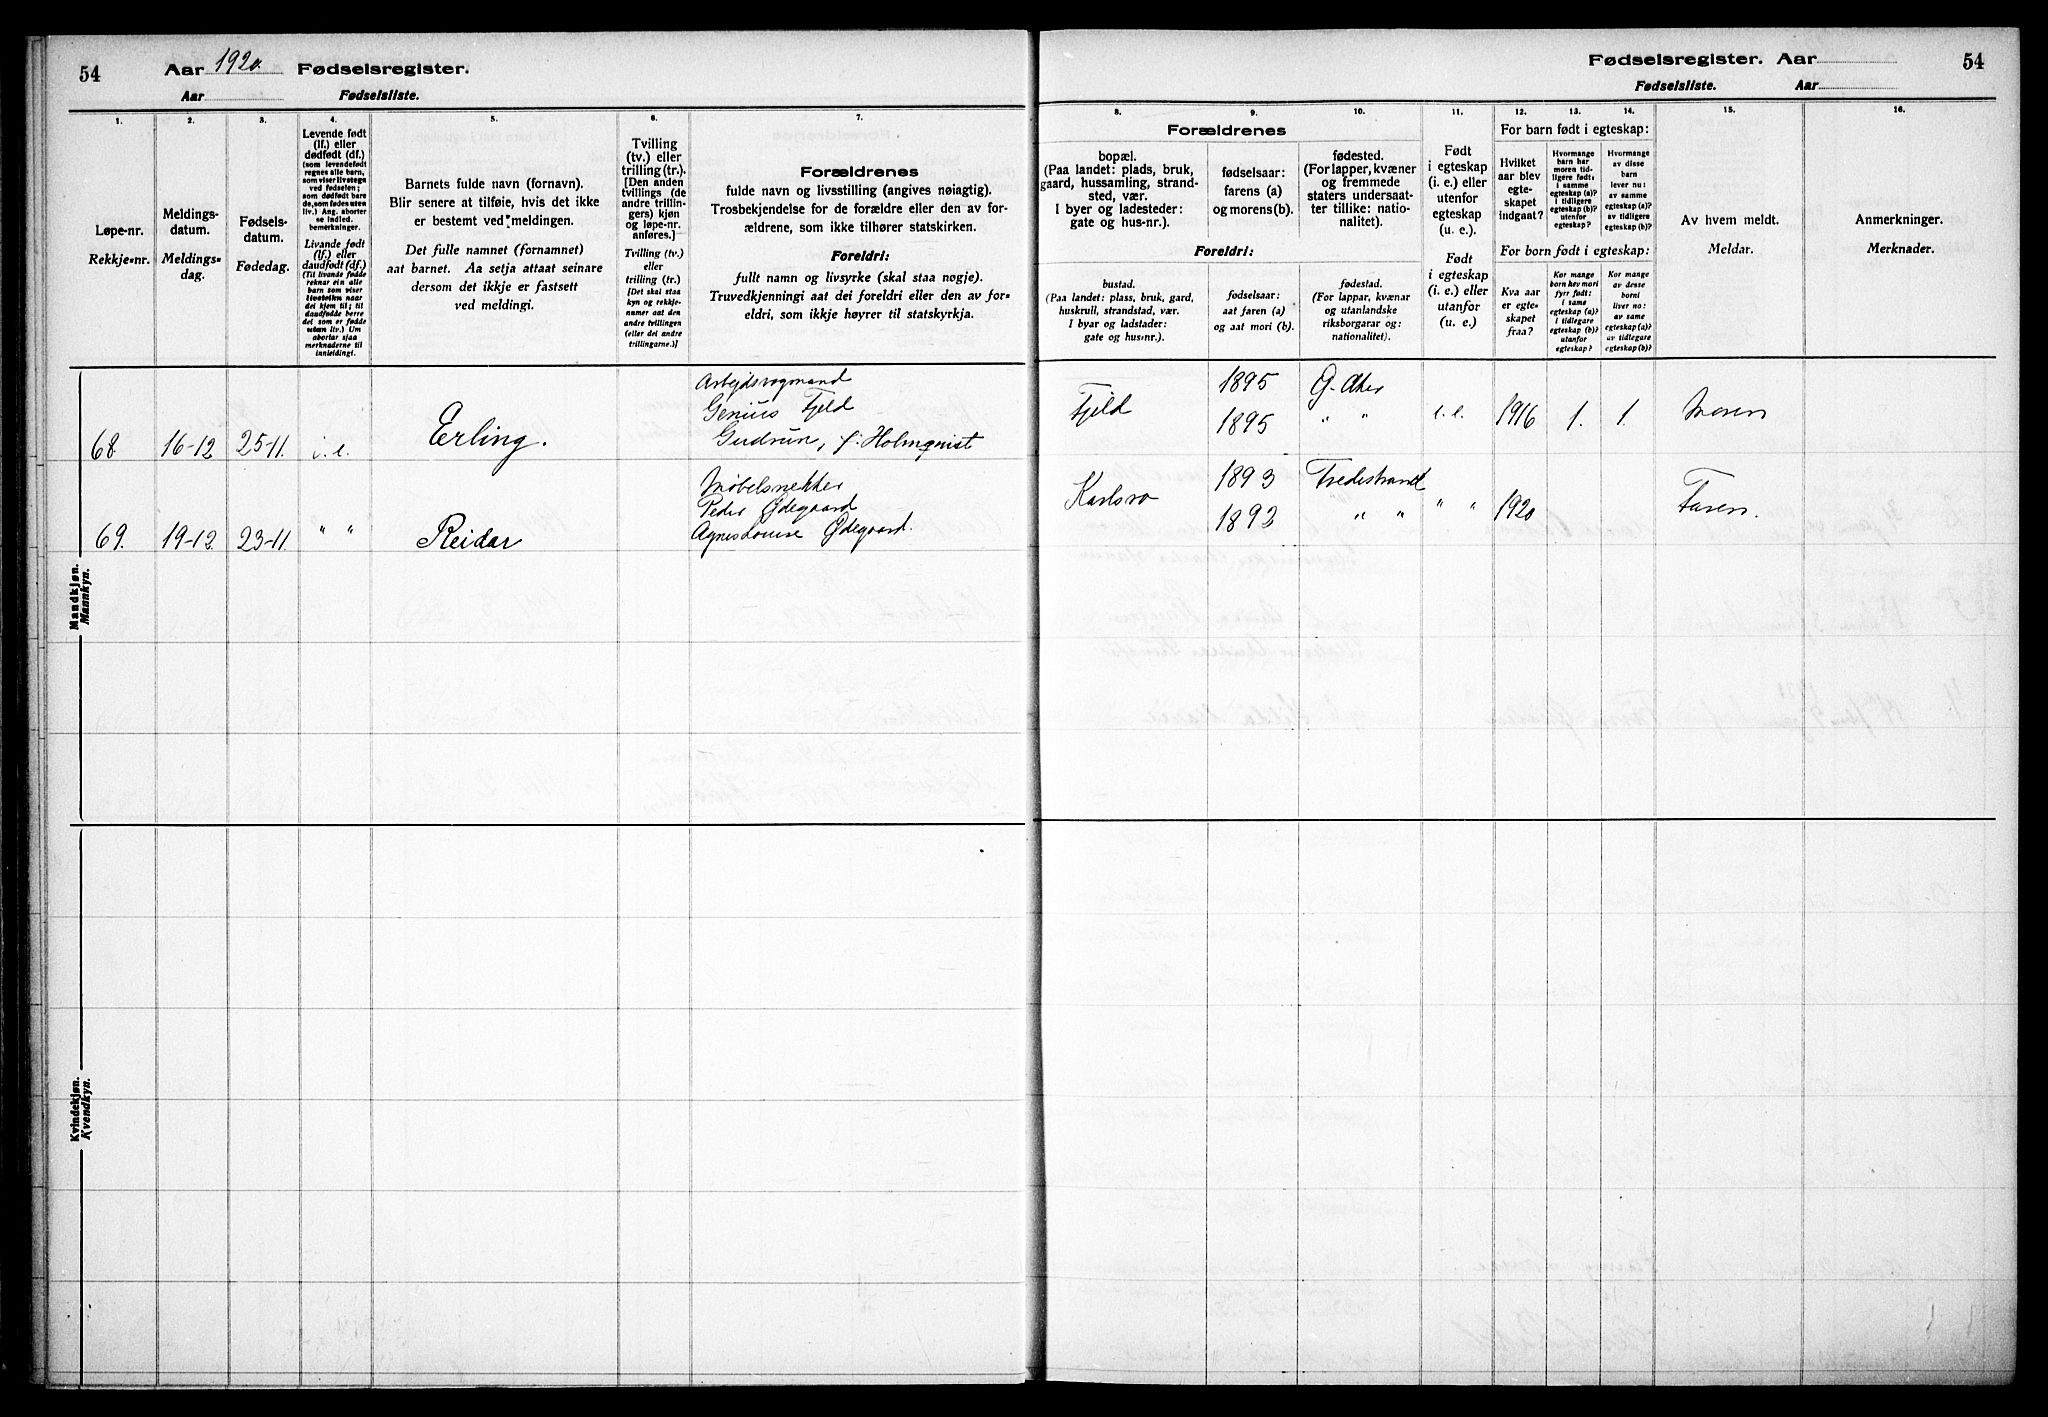 54
Aar 1920. Fødselsregister.
Aar Fødselsliste.
Fødselsregister. Aar
Fødselsliste. Aar
54
1.
Løpe-nr.
Rekkje-nr.
2.
Meldings-
datum.
Meldings-
dag.
3.
Fødsels-
datum.
Fødedag.
4.
Levende født
(lf.) eller
dødfødt (df.)
(som levendefødt
regnes alle barn,
som viser livstegn
ved fødselen;
som dødfødt bare
de, som fødes uten
liv.) Ang. aborter
se indled.
bemerkninger.
Livande født
(lf.) eller
daudfødt (df.)
(Til livande fødde
reknar ein alle
barn som viser
livsteikn naar
dei kjem til; til
daudfødde berre
dei som er fødde
utan liv.) Um
abortar sjaa
merknaderne til
innleidingi.
5.
Barnets fulde navn (fornavn).
Blir senere at tilføie, hvis det ikke
er bestemt ved meldingen.
Det fulle namnet (fornamnet)
aat barnet. Aa setja attaat seinare
dersom det ikkje er fastsett
ved meldingi.
6.
Tvilling
(tv.) eller
trilling (tr.).
[Den anden
tvillings (de
andre trillin-
gers) kjøn
og løpe-nr.
anføres.]
Tvilling (tv.)
eller
trilling (tr.)
[Det skal staa
kyn og rekkje-
numer aat den
andre tvillingen
(eller dei andre
trillingarne.)]
7.
Forældrenes
fulde navn og livsstilling (angives nøiagtig).
Trosbekjendelse for de forældre eller den av for-
ældrene, som ikke tilhører statskirken.
Foreldri:
fullt namn og livsyrke (skal staa nøgje).
Truvedkjenningi aat dei foreldri eller den av for-
eldri, som ikkje høyrer til statskyrkja.
8.
9.
10.
Forældrenes
bopæl.
(Paa landet: plads, bruk,
gaard, hussamling, strand-
sted, vær.
I byer og ladesteder:
gate og hus-nr.).
fødselsaar:
farens (a)
og morens (b).
fødested.
(For lapper, kvæner
og fremmede
staters undersaat-
ter tillike: natio-
nalitet).
Foreldri:
bustad.
(Paa landet: plass, bruk, gard,
huskrull, strandstad, vær.
I byar og ladstader:
gate og hus-nr.).
fødselsaar:
aat faren (a)
og aat mori (b).
fødestad.
(For lappar, kvænar
og utanlandske
riksborgarar og:
nationalitet.).
11.
Født
i egteskap
(i. e.) eller
utenfor
egteskap
(u. e.).
Født
i egteskap
(i. e.) eller
utanfor
(u. e.).
12.
13.
14.
For barn født i egteskap:
Hvilket
aar blev
egte-
skapet
indgaat?
Hvormange
barn har
moren tid-
ligere født:
i samme
egteskap (a)?
i tidligere
egteskap (b)?
utenfor
egteskap?
Hvormange
av disse
barn
lever nu:
av samme
egteskap (a)?
av tidligere
egteskap (b)?
For born født i egteskap:
Kva aar
er egte-
skapet
fraa?
Kor mange
born hev mori
fyrr født:
i same
egteskap (a)?
i tidlegare
egteskap (b)?
utanfor
egteskap?
Kor mange
av desse
borni
liver no:
av same
egteskap (a)?
av tidlegare
egteskap (b)?
15.
Av hvem meldt.
Meldar.
16.
Anmerkninger.
Merknader.
Mandkjøn.
Mannkyn.
68. 16-12 25-11. i. e. Erling.
Arbejdsvogmand
Genius Fjeld
Gudrun, f. Holmqvist
Fjeld
1895
1895
G. Aker
" "
i. e. 1916 1. 1. Moren
69. 19-12 23-11. " " Reidar
Møbelsnekker
Peder Ødegaard
Agnes Louise Ødegaard.
Karlsro
1893
1892
Tvedestrand
" "
" " 1920 Faren.
Kvindekjøn.
Kvendkyn.